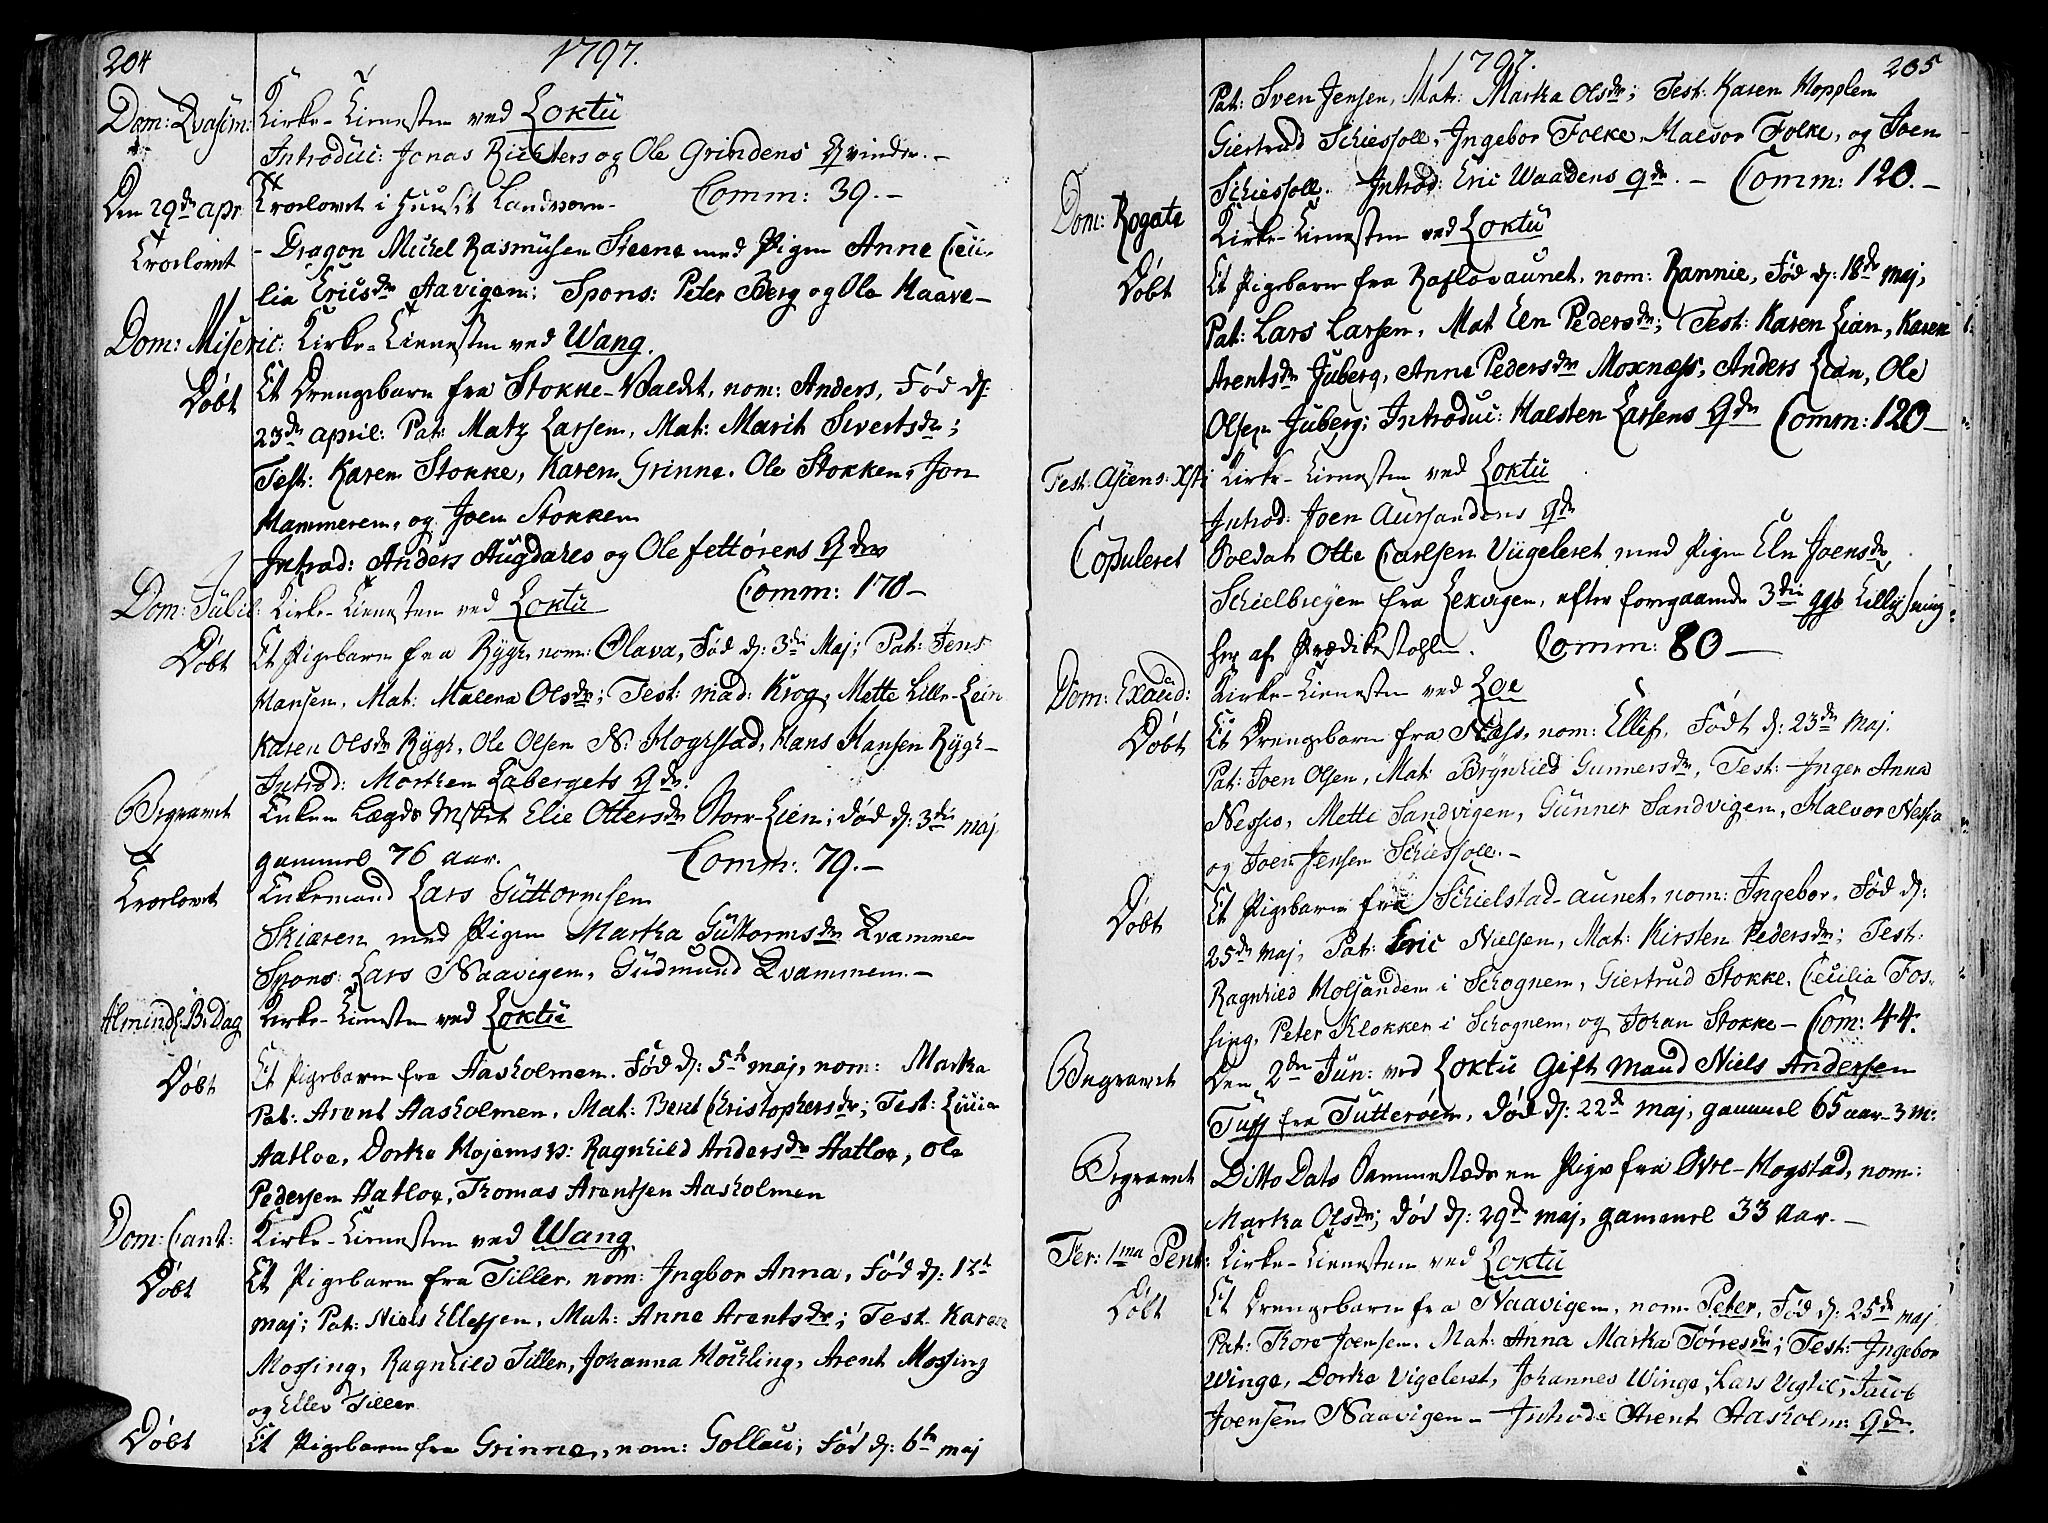 204
1797.
Dom: Qvasim:
Kirke-Tienesten ved Loktu
Introduc: Jonas Richters og Ole Grindens Qvinder.-
Den 29de apr
Trolovet i Huuset Landvorn- Comm: 39.-
Trolovet
- Dragon Michel Rasmusen Steene med Pigen Anne Ceci-
lia Ericsdr Aavigen; Spons: Peter Berg og Ole Haave-
Dom: Miseric:
Kirke-Tienesten ved Wang.
Døbt
Et Drengebarn fra Stokke-Valdt, nom: Anders, Fød d:
23de april: Pat: Matz Larsen, Mat: Marit Sivertsdr;
Test: Karen Stokke, Karen Grinne, Ole Stokken, Jon
Hammeren, og Joen Stokken
Introd: Anders Augdahls og Ole fettørens Qdr
Dom: Jubil:
Kirke-Tienesten ved Loktu Comm: 170-
Døbt
Et Pigebarn fra Rygh, nom: Olava, Fød d: 3de Maj; Pat: Jens
Hansen, Mat: Malena Olsdr; Test: mad: Krog, Mette Lille-Lein
Karen Olsdr Rygh, Ole Olsen N: Hogstad, Hans Hansen Rygh-
Introd: Morten Labergets Qdr.
Begravet
Enken Lægds Elie Ottersdr Storr-Lien; død d: 3die maj
gammel 76 aar. Comm: 79.-
Trolovet
Enkemand Lars Guttormsen
Skiæren med Pigen Martha Guttormsdr Qvammen
Spons: Lars Naavigen, Gudmund Qvammen.-
Almindl: B: Dag
Kirke-Tienesten ved Loktu
Døbt
Et Pigebarn fra Aasholmen. Fød d: 5te maj, nom: Marka
Pat: Arent Aasholmen, Mat: Berit Christophersdr; Test: Lucia
Aatloe, Dorka Ragnhild Andersdr Aatloe, Ole
Pedersen Aatloe, Thomas Arentsen Aasholmen
Dom: Cant:
Kirke-Tienesten ved Wang
Døbt
Et Pigebarn fra Tiller, nom: Ingbor Anna, Fød d: 12te
maj; Pat: Niels Ellefsen, Mat: Anne Arentsdr; Test: Karen
Mossing, Ragnhild Tiller, Johanna Hochling, Arent Mossing
og Ellev Tiller
Døbt
Et Pigebarn fra Grinne, nom: Gollau; Fød d: 6te maj
1797.
205
Pat: Sven Jensen, Mat: Marka Olsdr; Test: Karen Hopplen
Giertrud Schiessoll, Ingebor Folke, Malvor Folke, og Joen
Schiessoll. Introd: Eric Waadens Qdr. - Comm: 120.-
Dom: Rogate
Kirke-Tienesten ved Loktu
Døbt
Et Pigebarn fra Rafloaunet, nom: Rannie, Fød d: 18de maj,
Pat: Lars Larsen, Mat Eln Pedersdr; Test: Karen Lian, Karen
Arentsdr Juberg, Anne Pedersdr Moxness, Anders Lian, Ole
Olsen Juberg; Introduc: Halsten Larsens Qdr Comm: 120-
Fest: Ascens: Xsti
Kirke-Tienesten ved Loktu
Introd: Joen Aursandens Qdr
Copuleret
Soldat Otte Carlsen Viigeleret med Pigen Eln Joensdr
Schielbreyen fra Lexvigen, efter foregaaende 3die ggs Tillysning
her af Prædikestohlen. Comm: 80-
Dom: Exaud:
Kirke-Tienesten ved Loe
Døbt
Et Drengebarn fra Næss, nom: Ellef, Født d: 23de Maj.
Pat: Joen Olsen, Mat: Brynhild Gunnersdr, Test: Inger Anna
Nesses, Mette Sandvigen, Gunner Sandvigen, Halvor Nessia
og Joen Jensen Schiessoll.-
Døbt
Et Pigebarn fra Schielstad-aunet, nom: Ingebor, Fød d:
25de maj, Pat: Eric Nielsen, Mat: Kirsten Pedersdr; Test:
Ragnhild Holsanden i Schognen, Giertrud Stokke, Cecilia Fos-
sing, Peter Klokker i Schognen, og Johan Stokke- Com: 44.
Begravet
Den 2den Jun: ved Loktu Gift Mand Niels Andersen
Tuss fra Tutterøen, død d: 22de maj, gammel 65 aar 3 m:
Begravet
Ditto Dato Sammestæds en Pige fra Øvre-Hogstad, nom:
Marka Olsdr; død d: 29de maj, gammel 33 aar.-
Fer: 1ma Pent:
Kirke-Tienesten ved Loktu
Døbt
Et Drengebarn fra Naavigen, nom Peter, Fød d: 25de maj
Pat: Thore Joensen. Mat: Anna Marka Torresdr; Test: Ingebor
Winge, Dorka Vigeleret, Johannes Winge, Lars Vigtil, Jacob
Joensen Naavigen- Introd: Arent Aasholm: Qdr.